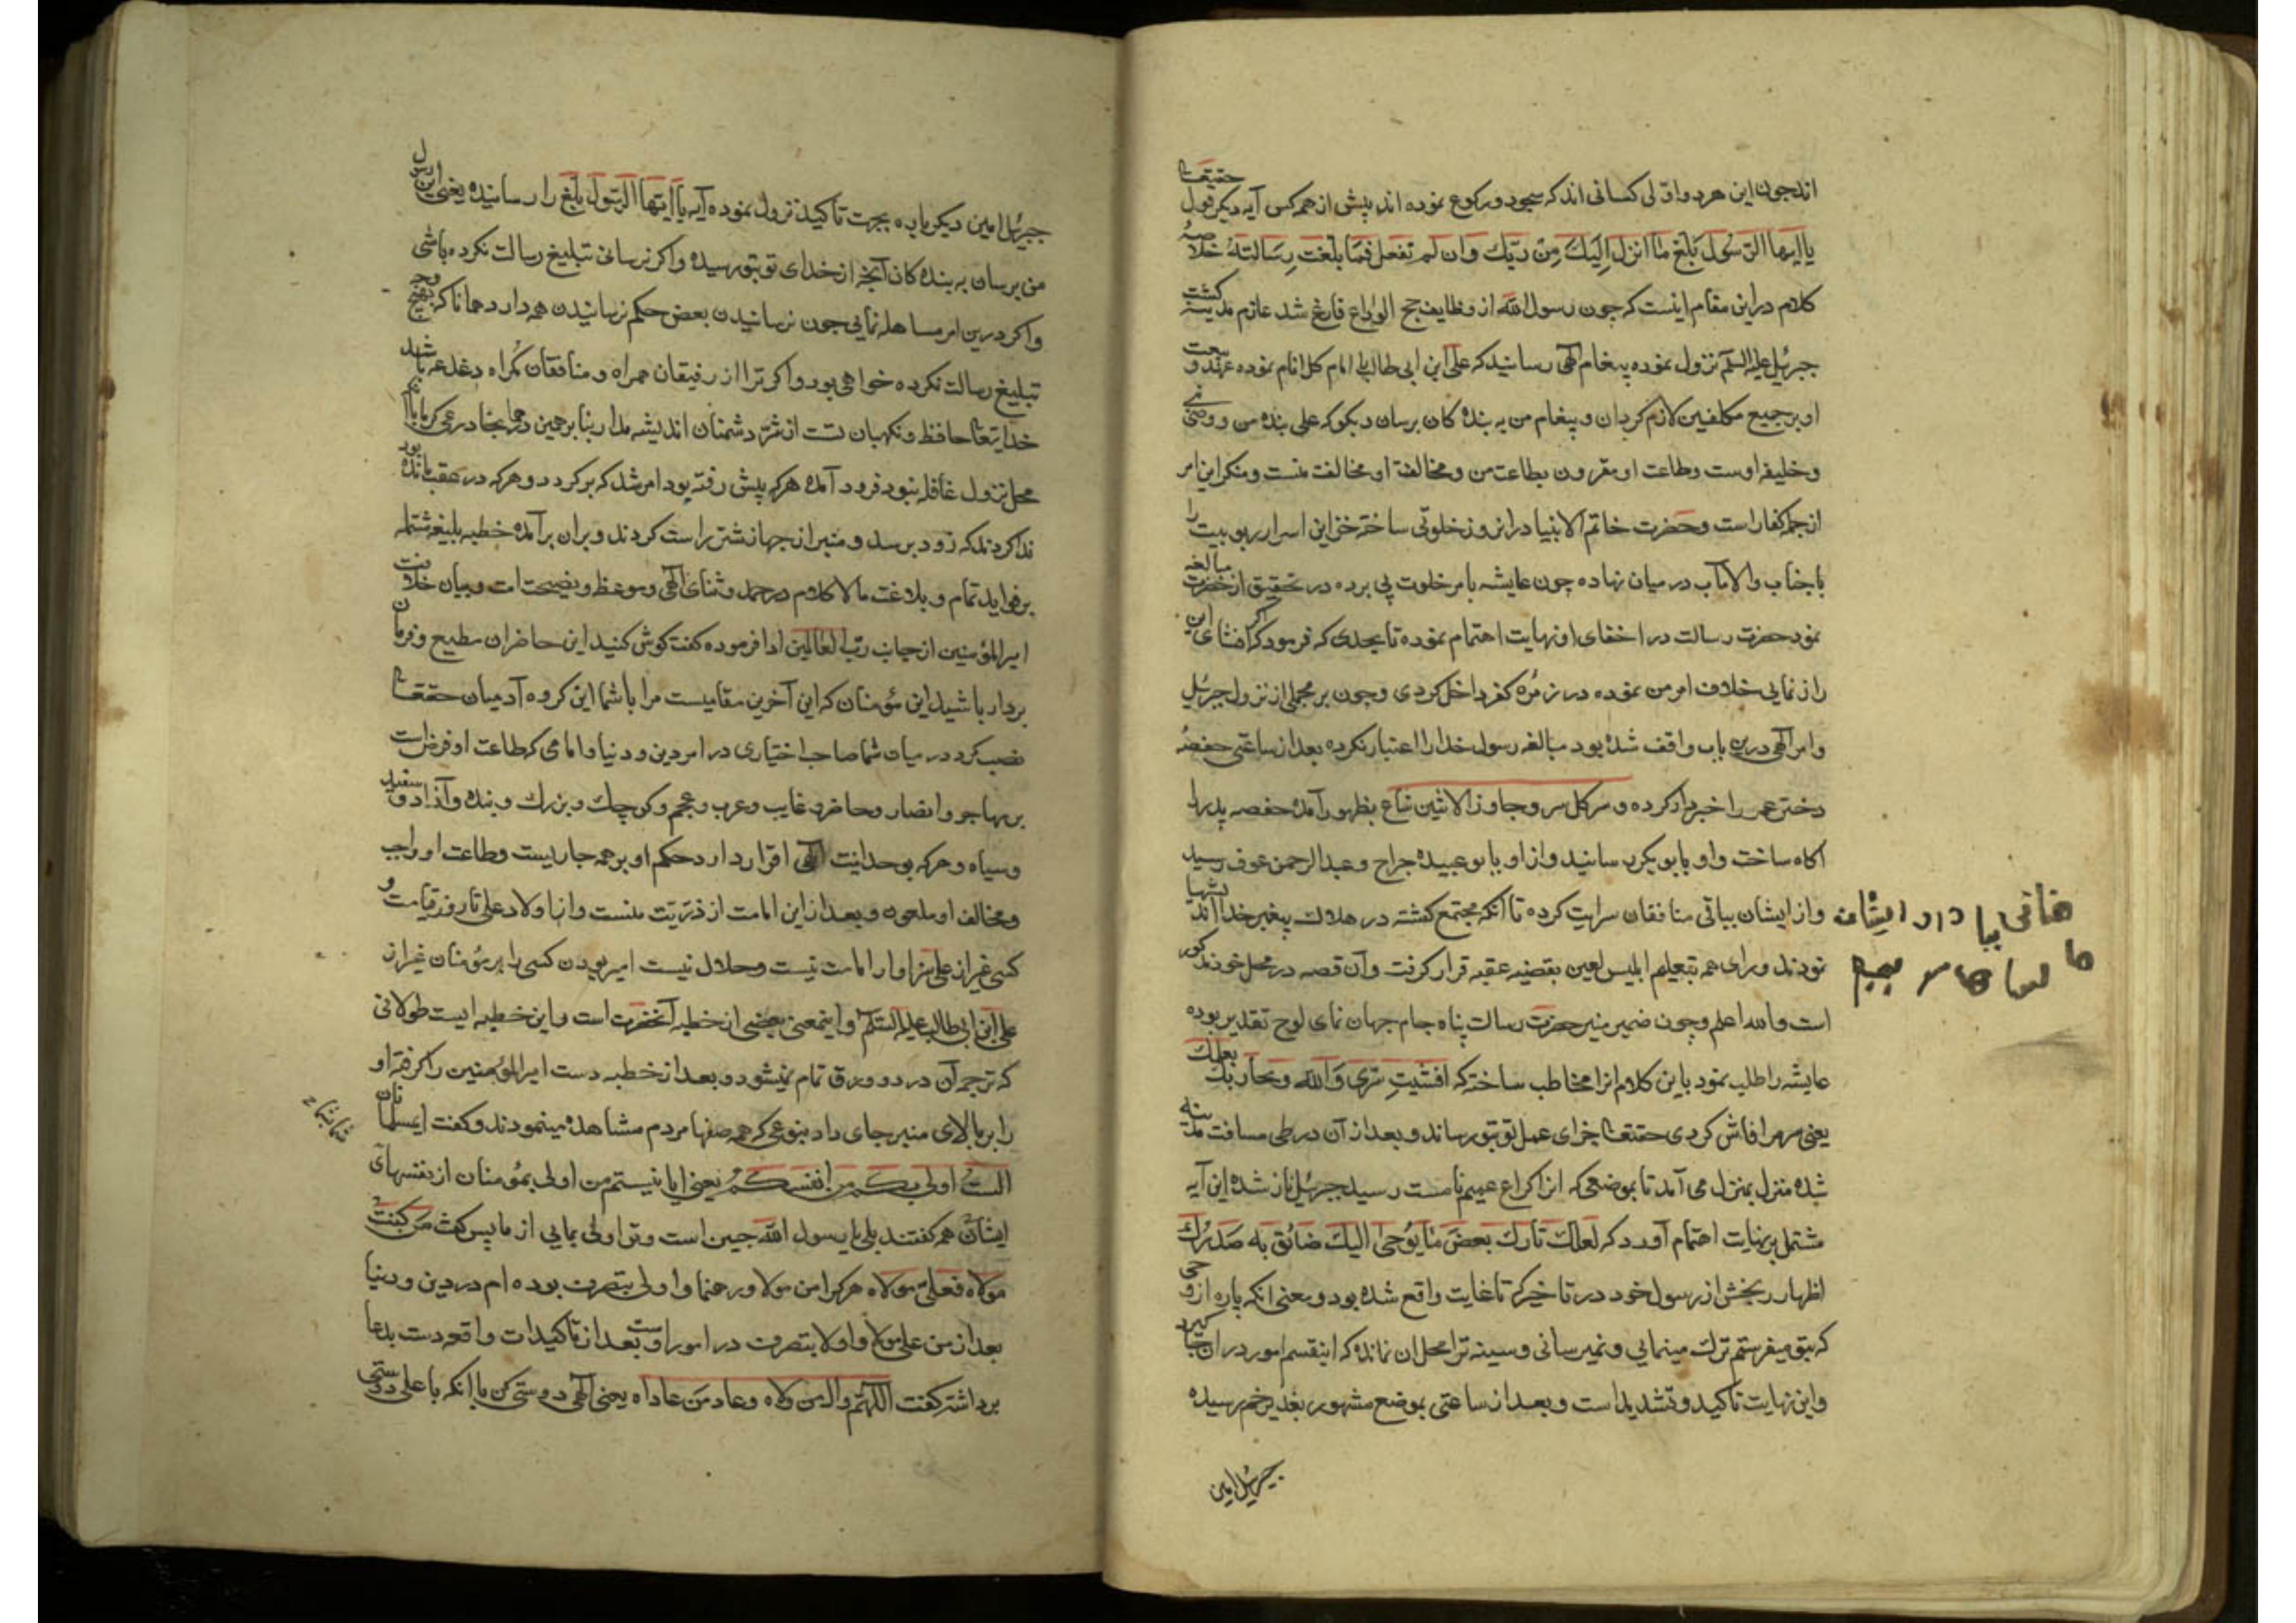 اند چون این هر دو اولی کسانی اند که سجود و رکوع نموده اند پیش از همه کس آیه دیگر قول حقیقتا
یا ایها الرسول بلغ ما انزل الیك من ربك وان لم تفعل فما بلغت رسالته خلاصه
کلام در این مقام اینست که چون رسول الله از وظایف حج الوداع فارغ شد عازم مدینه کشت
جبرئیل علیه السلم نزول نموده پیغام الهی رسانید که علی ابن ابی طالب را امام کل انام نموده عهد و بیعت
او بر جمیع مکلفین لازم کردان و پیغام من به بنده کان برسان و بکو که علی بنده من و وصی نبی
و خلیفه اوست و طاعت او مقرون بطاعت من و مخالفة او مخالفت منست و منکر این امر
از جمله کفار است و حضرت خاتم الانبیا در انروز خلوتی ساخته خزاین اسرار ربوبیت را
با جناب ولایتمآب در میان نهاده چون عایشه بامر خلوت پی برده در تحقیق از حضرت مبالغه
نمود حضرت رسالت در اخفای او نهایت اهتمام نموده تا بحدی که فرمود که اکر افشای این
راز نمایی خلاف امر من نموده در زمره کفر داخل کردی و چون بر مجملی از نزول جبرئیل
و امر الهی درین باب واقف شده بود مبالغه رسول خدا را اعتبار نکرده بعد از ساعتی حفصه
دختر عمر را خبردار کرده و سر کل سر وجاوز الاثنین شاع بظهور آمده حفصه پدر را
اکاه ساخت و او بابوبکر رسانید و از او بابو عبیده جراح و عبد الرحمن عوف رسید
و از ایشان بباقی منافقان سرایت کرده تا آنکه مجتمع کشته در هلاك پیغمبر خدا اندیشها
نمودند و رای همه بتعلیم ابلیس لعین بقضیه عقبه قرار کرفت و آن قصه در محل خود مذکور
است والله اعلم و چون ضمیر منیر حضرت رسالت پناه جام جهان نمای لوح تقدیر بوده
عایشه را طلب نمود باین کلام انرا مخاطب ساخته که افشیت سری والله وبحاربك بعملك
یعنی سر مرا فاش کردی حقتعالی جزای عمل تو بتو رساند و بعد از آن در طی مسافت مدینه
شده منزل بمنزل می آمد تا بموضعی که انرا کراع عمیم نامست رسید جبرئیل نازل شده این آیه
مشتمل بر نهایت اهتمام آورد که لعلك تارك بعض ما یوحی الیك ضائق به صدرك
اظهار رنجش از رسول خود در تاخیر که تا غایت واقع شده بود و یعنی انکه پاره از وحی
که بتو میفرستم ترك مینمایی و نمیرسانی و سینه ترا محل ان نمانده که اینقسم امور در ان جا کیرد
و این نهایت تاکید و تشدید است و بعد از ساعتی بموضع مشهور بغدیر خم رسیده
جبرئیل امین
جبرئیل امین دیکر باره بجهت تاکید نزول نموده آیه یا ایها الرسول بلغ را رسانیده یعنی این رسول
من برسان به بنده کان آنچه از خدای تو بتو رسیده و اکر نرسانی تبلیغ رسالت نکرده باشی
و اکر درین امر مساهله نمایی چون نرسانیدن بعض حکم نرسانیدن همه دارد همانا که بهیچ وجه
تبلیغ رسالت نکرده خواهی بود و اکر ترا از رفیقان همراه و منافقان کمراه دغدغه باشد
خدایتعالی حافظ و نکهبان تست از شر دشمنان اندیشه مدار بنابرین همانجا در عین کرما با آنکه
محل نزول قافله نبود فرود آمده هر که پیش رفته بود امر شد که برکردد و هر که در عقب مانده بود
ندا کردند که زود برسد و منبر از جهاز شتر راست کردند و بران برآمده خطبه بلیغه مشتمله
بر فواید تمام و بلاغت مالا کلام در حمد و ثنای الهی و موعظ و نصیحت امت و بیان خلافت
امیر المؤمنین از جناب رب العالمین ادا فرموده کفت کوش کنید این حاضران مطیع و فرمان
بردار باشید این مؤمنان که این آخرین مقامیست مرا با شما این کروه آدمیان حقتعالی
نصب کرد در میان شما صاحب اختیاری در امر دین و دنیا و امامی که طاعت او فرض است
بر مهاجر و انصار و حاضر و غایب و عرب و عجم و کوچك و بزرك و بنده و آزاد و سفید
و سیاه و هر که بوحدانیت الهی اقرار دارد حکم او بر همه جاریست و طاعت او واجب
و مخالف او ملعون و بعد از این امامت از ذریت منست و از اولاد علی تا روز قیامت و
کسی غیر از علی سزاوار امامت نیست و حلال نیست امیر بودن کسی را بر مؤمنان غیر از
علی ابن ابی طالب علیه السلم و اینمعنی بعضی از خطبه آنحضرت است و این خطبه ایست طولانی
که ترجمه آن در دو ورق تمام نمیشود و بعد از خطبه دست امیر المؤمنین را کرفته او
را بر بالای منبر جای داد بنوعی که همه صفها مردم مشاهده مینمودند و کفت ایمسلمانان
الست اولی بکم من انفسکم یعنی ایا نیستم من اولی بمؤمنان از نفسهای
ایشان همه کفتند بلی یا رسول الله چنین است و تو اولی بمایی از ما پس کفت من کنت
مولاه فعلی مولاه هر که را من مولا و رهنما و اولی بتصرف بوده ام در دین و دنیا
بعد از من علی مولا و اولا بتصرف در امور اوست بعد از تاکیدات واقعه دست بدعا
برداشته کفت اللهم وال من والاه وعاد من عاداه یعنی الهی دوستی کن با انکه با علی دوستی